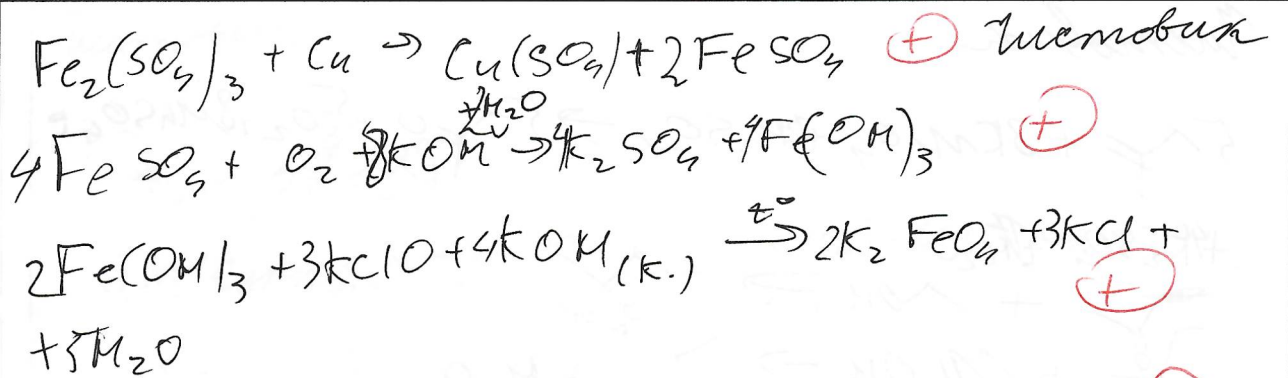 Fe₂(SO₄)₃ + Cu → Cu(SO₄) + 2FeSO₄ + Чистовик
+2H₂O
4FeSO₄ + O₂ + 8KOH → 4K₂SO₄ + 4Fe(OH)₃ +
2Fe(OH)₃ + 3KClO + 4KOH (к.) t° → 2K₂FeO₄ + 3KCl + +
+5H₂O